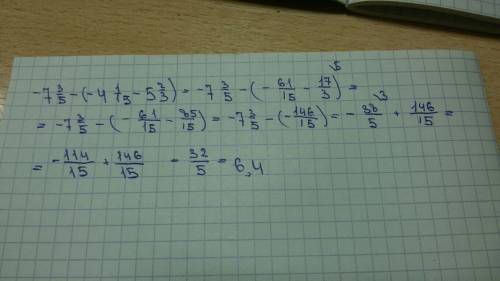 -7 3/5 - (-4 1/15 - 5 2/3) = -7 3/5 - (- 61/15 - 17/3) 5 =
= -7 3/5 - (- 61/15 - 85/15) = -7 3/5 - (- 146/15) = - 38/5 3 + 146/15 =
= - 114/15 + 146/15 = 32/5 = 6,4